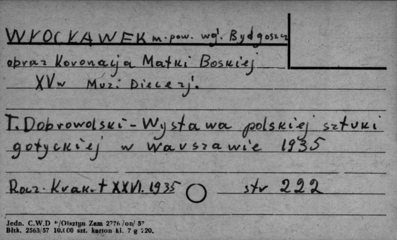 WŁOCŁAWEK m. pow. wg. Bydgoszcz
obraz Koronacja Matki Boskiej
XVw Muz. Diecezj.
T. Dobrowolski - Wystawa polskiej sztuki
gotyckiej w Warszawie 1935
Rocz. Krak. t XXVI. 1935 str 222
Jedn. C.W.D Olsztyn Zam
Błhk. 2563/57 10.000 szt. karton kl. 7 g 120.